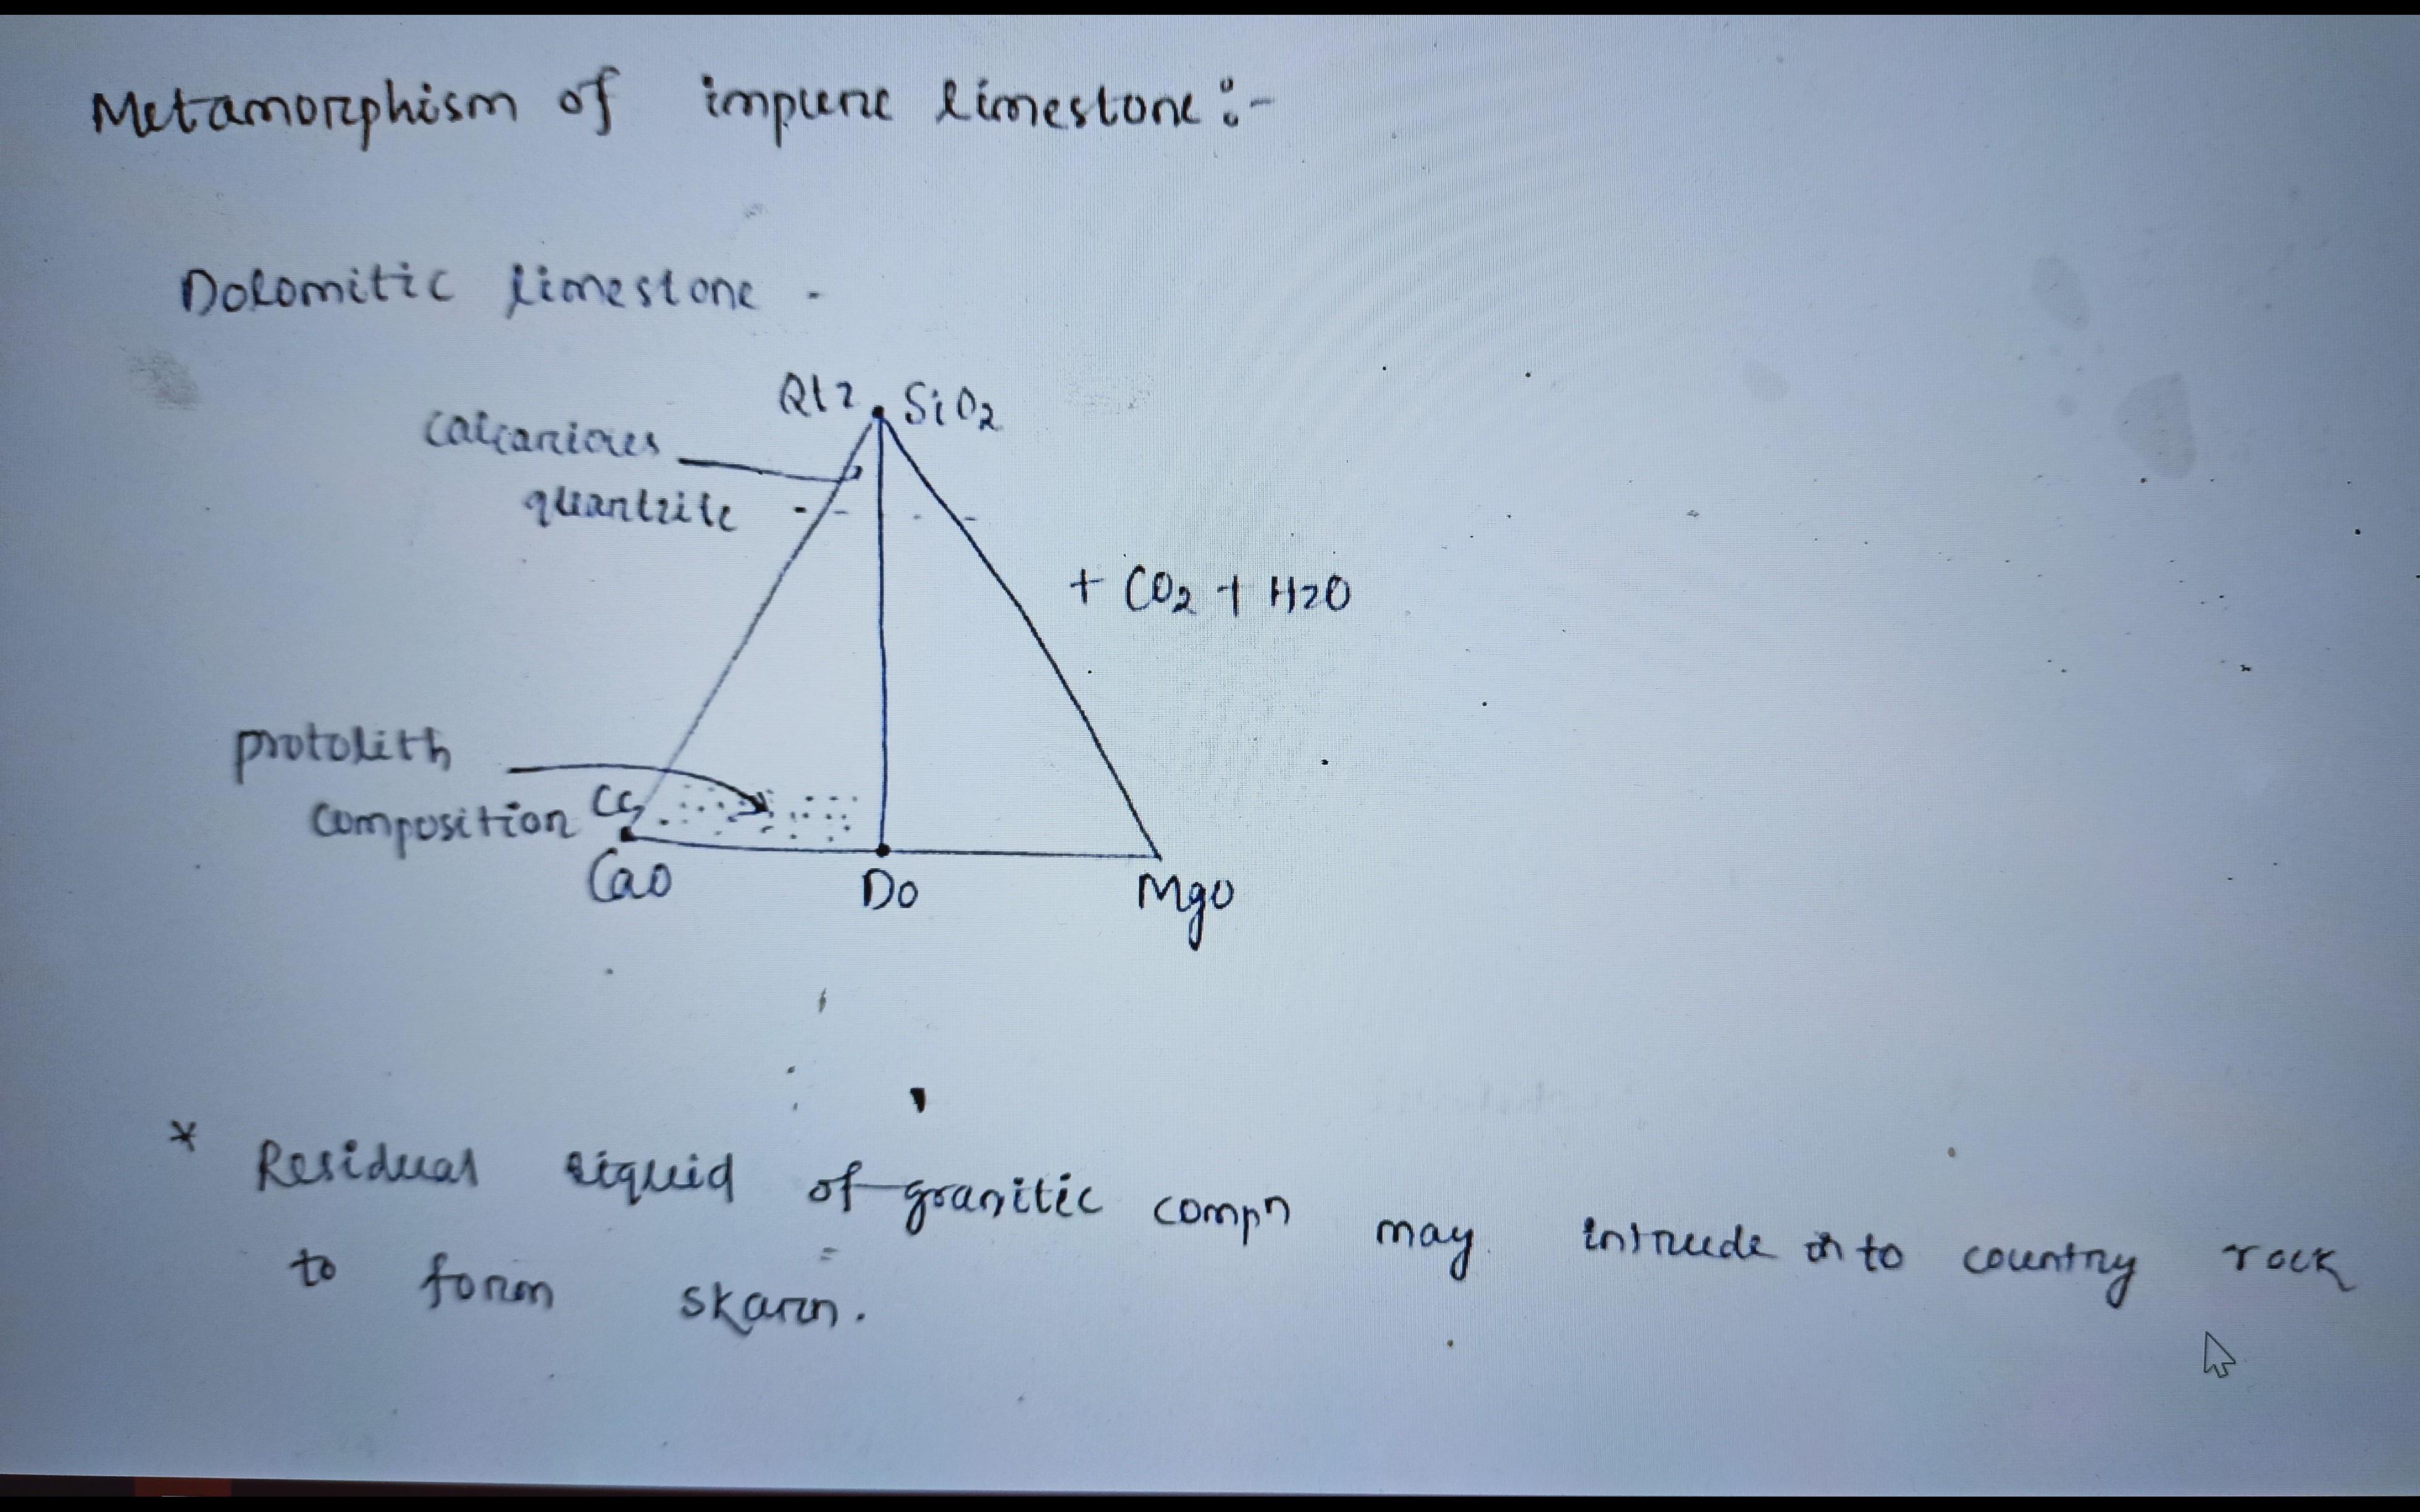 Metamorphism of impure limestone :-
Dolomitic limestone -
Qtz SiO2
calcarious
quartzite
+ CO2 + H2O
protolith
composition Cc
CaO Do MgO
* Residual liquid of granitic compn may intrude into country rock
to form skarn.